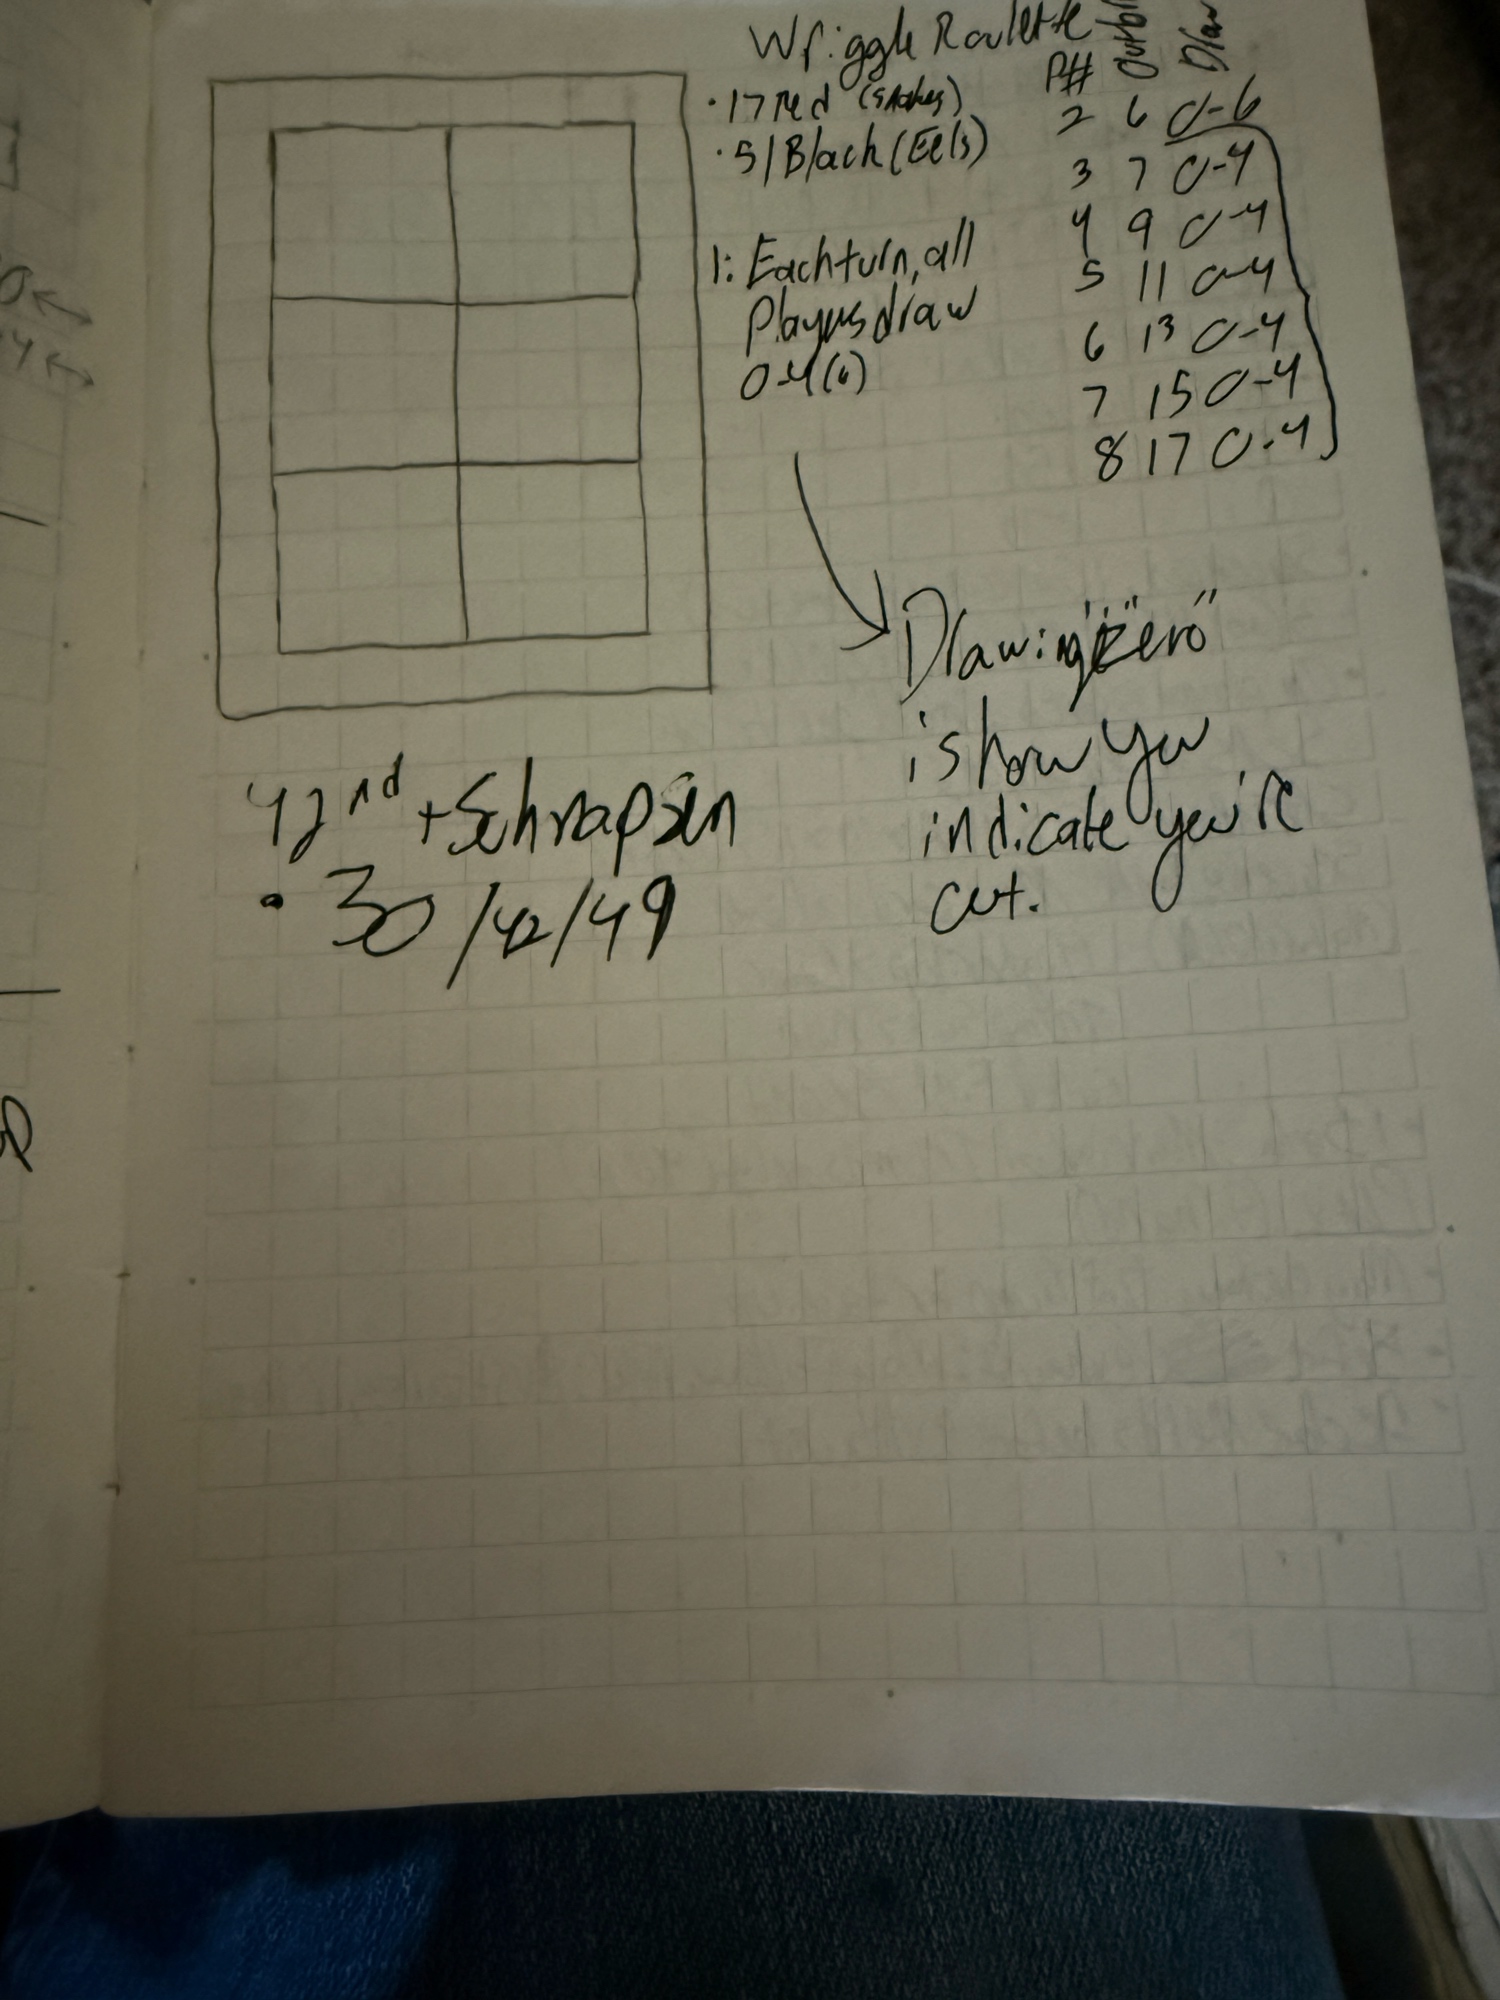 Wriggle Roulette
• 17 red (snakes)
• 51 Black (Eels)
1: Each turn, all
Players draw
0-4(6)
P# Draw
2 6 0-6
3 7 0-4
4 9 0-4
5 11 0-4
6 13 0-4
7 15 0-4
8 17 0-4
Drawing "Zero"
is how you
indicate you're
out.
42nd + Schnapsen
• 30/42/49